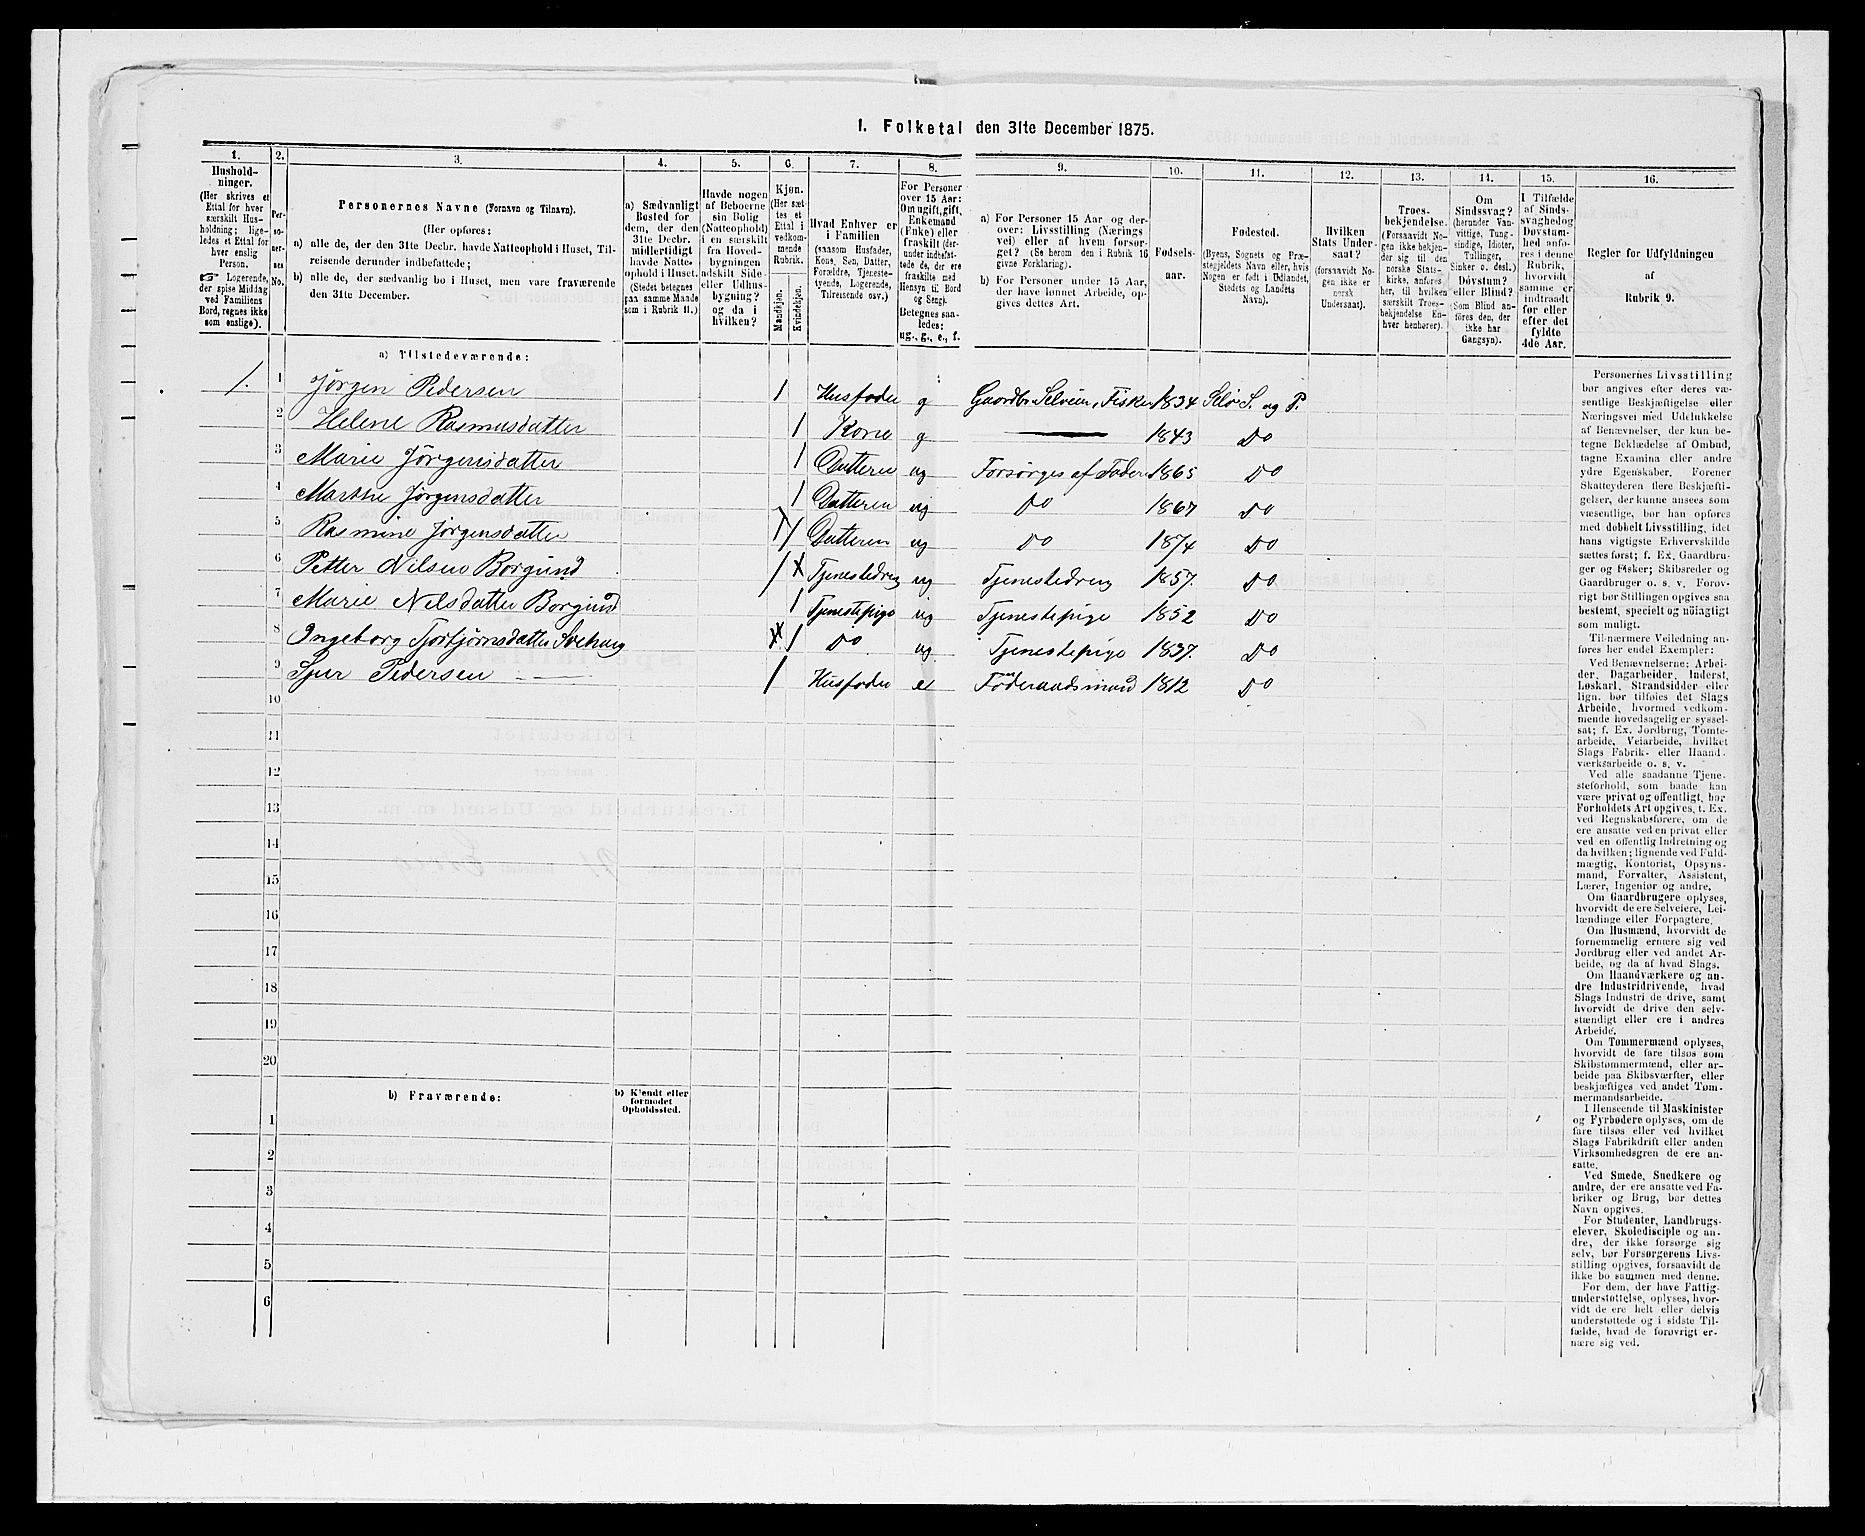 1. Folketal den 31te December 1875.
1. 2. 3. 4. 5. 6. 7. 8. 9. 10. 11. 12. 13. 14. 15. 16.
Hushold-
ninger.
(Her skrives et
Ettal for hver
særskilt Hus-
holdning; lige-
ledes et Ettal for
hver enslig
Person.
☞ Logerende,
der spise Middag
ved Familiens
Bord, regnes ikke
som enslige).
Per-
so-
ner-
nes
No.
Personernes Navne (Fornavn og Tilnavn).
(Her opføres:
a) alle de, der den 31te Decbr. havde Natteophold i Huset, Til-
reisende derunder indbefattede;
b) alle de, der sædvanlig bo i Huset, men vare fraværende
den 31te December.
a) Sædvanligt
Bosted for
dem, der den
31te Decbr.
midlertidigt
havde Natte-
ophold i Huset.
(Stedet betegnes
paa samme Maade
som i Rubrik 11.)
Havde nogen
af Beboerne
sin Bolig
(Natteophold)
i en særskilt
fra Hoved-
bygningen
adskilt Side-
eller Udhus-
bygning?
og da i
hvilken?
Kjøn.
(Her sæt-
tes et
Ettal i
vedkom-
mende
Rubrik.
Mandkjøn.
Kvindekjøn.
Hvad Enhver er
i Familien
(saasom Husfader,
Kone, Søn, Datter,
Forældre, Tjeneste-
tyende, Logerende,
Tilreisende osv.)
For Personer
over 15 Aar:
Om ugift, gift,
Enkemand
(Enke) eller
fraskilt (der-
under indbefat-
tede de, der ere
fraskilte med
Hensyn til Bord
og Seng).
Betegnes saa-
ledes:
ug., g., e., f.
a) For Personer 15 Aar og der-
over: Livsstilling (Nærings
vei) eller af hvem forsør-
get? (Se herom den i Rubrik 16
givne Forklaring).
b) For Personer under 15 Aar,
der have lønnet Arbeide, op-
gives dettes Art.
Fødsels-
aar.
Fødested.
(Byens, Sognets og Præ-
stegjeldets Navn eller, hvis
Nogen er født i Udlandet,
Stedets og Landets
Navn).
Hvilken
Stats Under-
saat?
(forsaavidt No-
gen ikke er
norsk
Undersaat).
Troes-
bekjendelse.
(Forsaavidt No-
gen ikke bekjen-
der sig til den
norske Stats-
kirke, anføres
her, til hvilken
særskilt Troes-
bekjendelse En-
hver henhører).
Om
Sindssvag?
(herunder Van-
vittige, Tung-
sindige, Idioter,
Tullinger,
Sinker o. desl.)
Døvstum?
eller Blind?
Som Blind an-
føres den, der
ikke har
Gangsyn).
I Tilfælde
af Sinds-
svaghed og
Døvstum-
hed anfø-
res i denne
Rubrik,
hvorvidt
samme er
indtraadt
før eller
efter det
fyldte
4de Aar.
Regler for Udfyldningen
af
Rubrik 9.
a) Tilstedeværende:
1. 1 Jørgen Pedersen 1 Husfader g Gaardbr. Selveier, Fisker 1834 Selø S. og P.
2 Helene Rasmusdatter 1 Kone g 1843 Do
3 Marie Jørgensdatter 1 Datteren ug Forsørges af Faderen 1865 Do
4 Marthe Jørgensdatter 1 Datteren ug Do 1867 Do
5 Rasmine Jørgensdatter 1 Datteren ug Do 1874 Do
6 Petter Nilsen Borgund 1 Tjenestedreng ug Tjenestedreng 1857. Do
7 Marie Nelsdatter Borgund 1 Tjenestepige ug Tjenestepige 1852 Do
8 Ingeborg Torbjørnsdatter 1 Do ug Tjenestepige 1837. Do
9 Pedersen 1 Husfader e Føderaadsmand 1812 Do
10
11
12
13
14
15
16
17
18
19
20
b) Fraværende:
b) Kjendt eller
formodet
Opholdssted.
1
2
3
4
5
6
Personernes Livsstilling
bør angives efter deres væ-
sentlige Beskjæftigelse eller
Næringsvei med Udelukkelse
af Benævnelser, der kun be-
tegne Beklædelse af Ombud,
tagne Examina eller andre
ydre Egenskaber. Forener
Skatteyderen flere Beskjæfti-
gelser, der kunne ansees som
væsentlige, bør han opføres
med dobbelt Livsstilling, idet
hans vigtigste Erhvervskilde
sættes først; f. Ex. Gaardbru-
ger og Fisker; Skibsreder og
Gaardbruger o. s. v. Forøv-
rigt bør Stillingen opgives saa
bestemt, specielt og nøiagtigt
som muligt.
Til nærmere Veiledning an-
føres her endel Exempler:
Ved Benævnelserne: Arbei-
der, Dagarbeider, Inderst,
Løskarl, Strandsidder eller
lign. bør tilføies det Slags
Arbeide, hvormed vedkom-
mende hovedsagelig er syssel-
sat; f. Ex. Jordbrug, Tomte-
arbeide, Veiarbeide, hvilket
Slags Fabrik- eller Haand-
værksarbeide o. s. v.
Ved alle saadanne Tjene-
steforhold, som baade kan
være privat og offentligt, bør
Forholdets Art opgives, t. Ex.
ved Regnskabsførere, om de
ere ansatte ved en privat eller
ved en offentlig Indretning og
da hvilken; lignende ved Fuld-
mægtig, Kontorist, Opsyns-
mand, Forvalter, Assistent,
Lærer, Ingeniør og andre.
Om Gaardbrugere oplyses,
hvorvidt de ere Selveiere, Lei-
lændinge eller Forpagtere.
Om Husmænd, hvorvidt de
fornemmelig ernære sig ved
Jordbrug eller ved andet Ar-
beide, og da af hvad Slags.
Om Haandværkere og an-
dre Industridrivende, hvad
Slags Industri de drive, samt
hvorvidt de drive den selv-
stændigt eller ere i andres
Arbeide.
Om Tømmermænd oplyses,
hvorvidt de fare tilsøs som
Skibstømmermænd, eller ar-
beide paa Skibsværfter, eller
beskjæftiges ved andet Tøm-
mermandsarbeide.
I Henseende til Maskinister
og Fyrbødere oplyses, om de
fare tilsøs eller ved hvilket
Slags Fabrikdrift eller anden
Virksomhedsgren de ere an-
satte.
Ved Smede, Snedkere og
andre, der ere ansatte ved Fa-
briker og Brug, bør dettes
Navn opgives.
For Studenter, Landbrugs-
elever, Skoledisciple og an-
dre, der ikke forsørge sig
selv, bør Forsørgerens Livs-
stilling opgives, forsaavidt de
ikke bo sammen med denne.
For dem, der have Fattig-
understøttelse, oplyses, hvor-
vidt de ere helt eller delvis
understøttede og i sidste Til-
fælde, hvad de forøvrigt er-
nære sig ved.